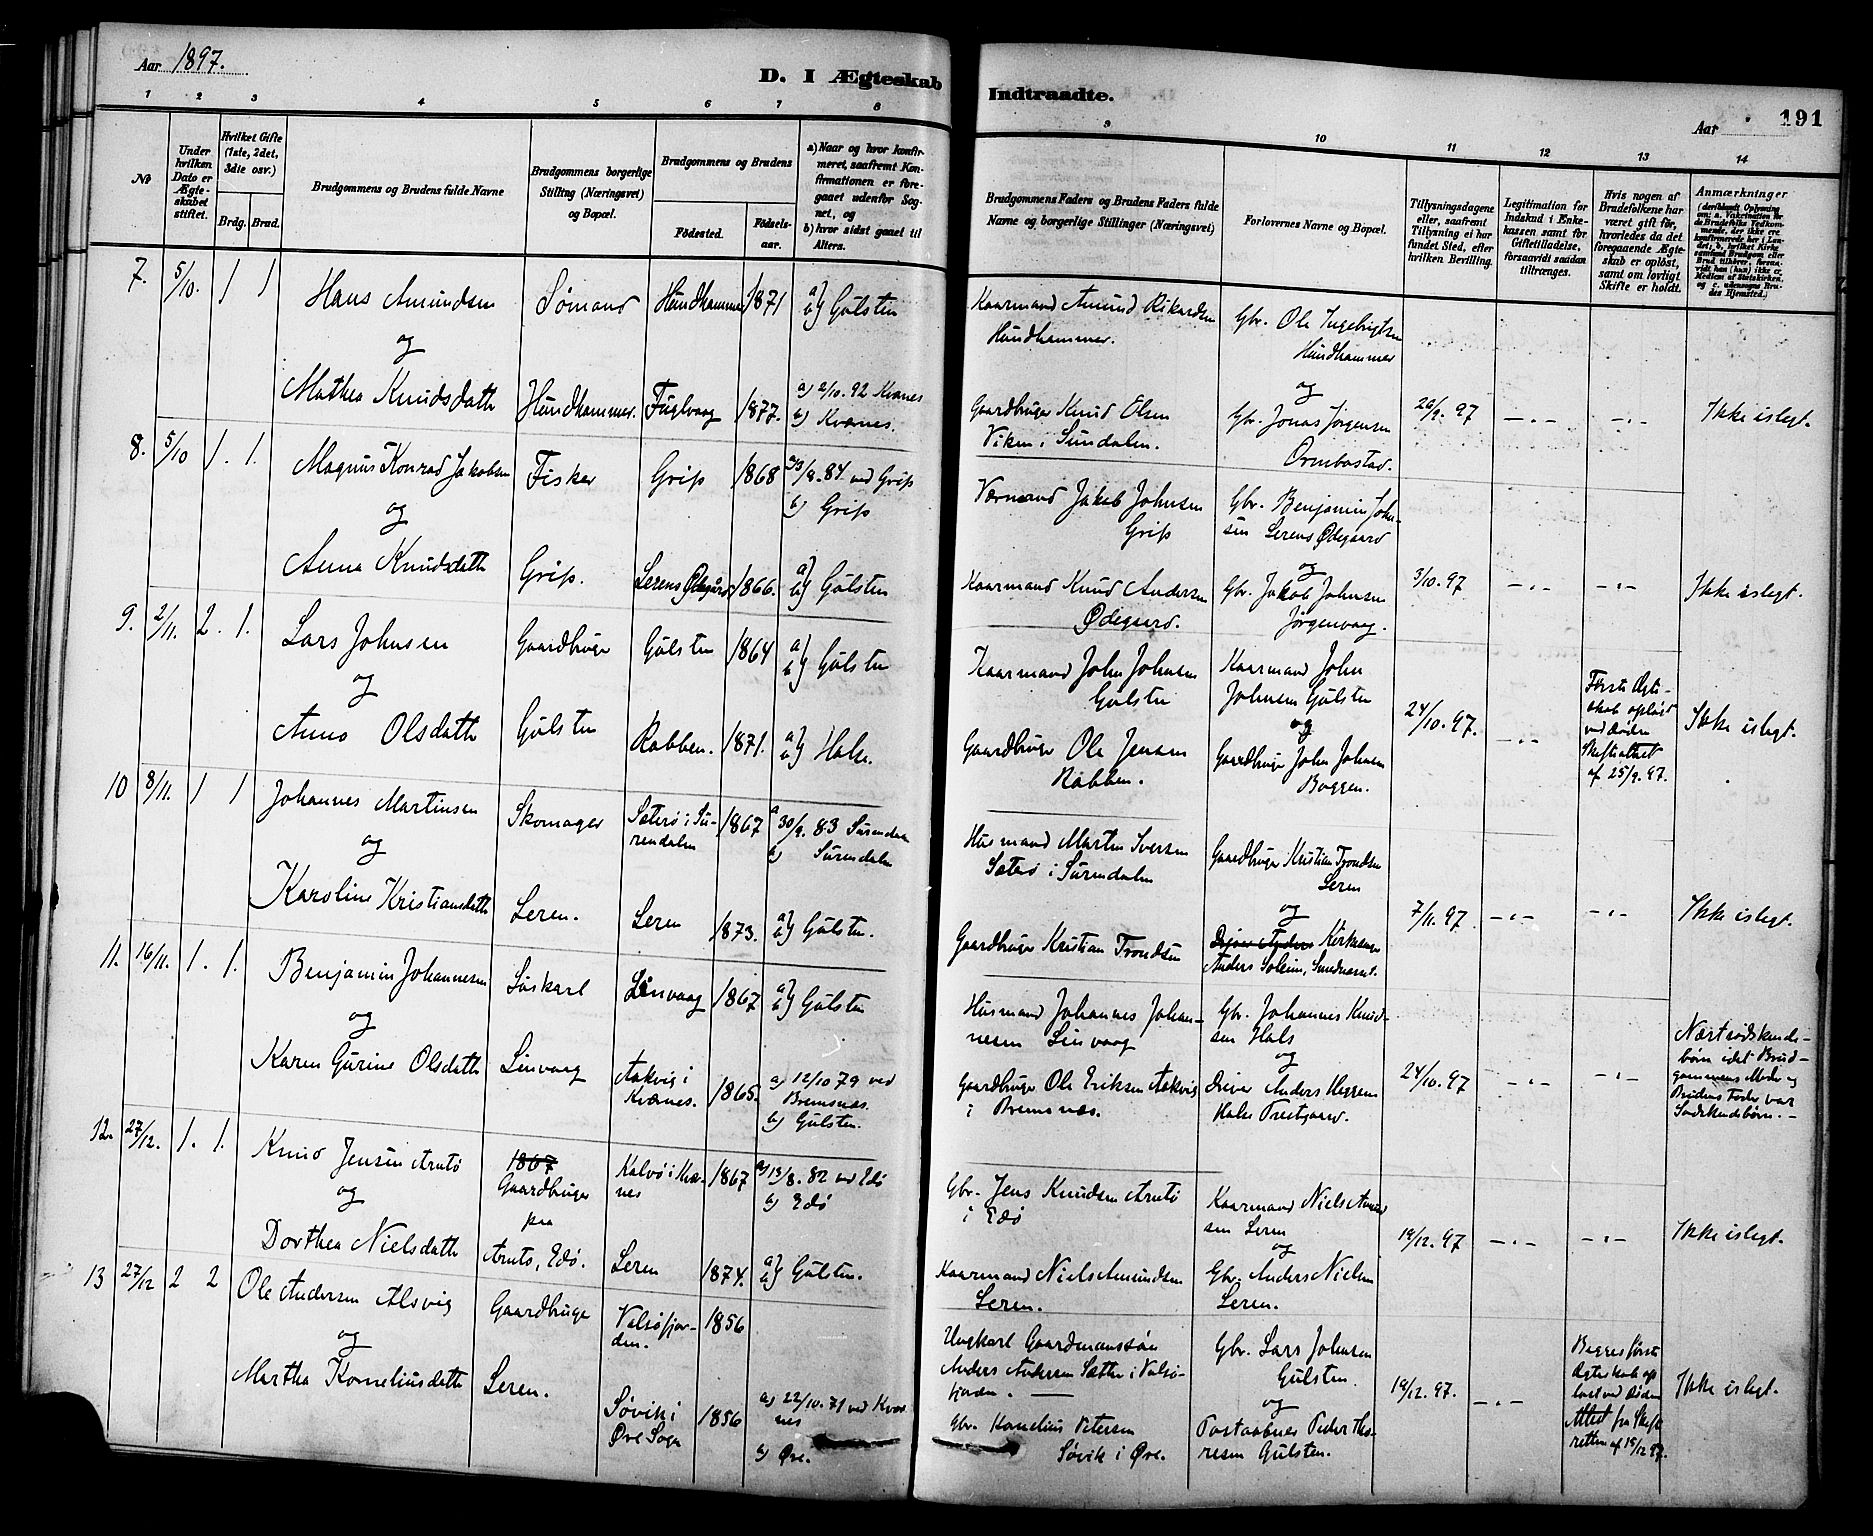 Aar 1897.
D. I Ægteskab
Indtraadte.
Aar
191
1 2 3 4 5 6 7 8 9 10 11 12 13 14
No
Under hvilken Dato er Ægteskabet stiftet.
Hvilket Gifte (1ste, 2det, 3die osv.)
Brdg. Brud.
Brudgommens og Brudens fulde Navne
Brudgommens borgerlige Stilling (Næringsvei) og Bopæl.
Brudgommens og Brudens
Fødested.
Fødselsaar.
a) Naar og hvor konfirmeret, saafremt Konfirmationen er foregaaet udenfor Sognet, og
b) hvor sidst gaaet til Alters.
Brudgommens Faders og Brudens Faders fulde Navne og borgerlige Stillinger (Næringsvei)
Forlovernes Navne og Bopæl.
Tillysningsdagene eller, saafremt Tillysning ei har fundet Sted, efter hvilken Bevilling.
Legitimation for Indskud i Enkekassen samt for Giftetilladelse, forsaavidt saadan tiltrænges.
Hvis nogen af Brudefolkene har været gift før, hvorledes da det foregaaende Ægteskab er opløst, samt om lovligt Skifte er holdt.
Anmærkninger
7. 5/10. 1 1
Hans Amundsen
og
Mathea Knudsdatte
Sømand
Hundhammer.
Hundhammer 1871
Fuglvaag 1877.
a) b) Gulsten
a) 2/10. 92 Kvænes
b) Kvænes.
Kaarmand Amund Rikardsen
Hundhammer.
Gaardbruger Knud Olsen
Viken i Sundalen.
Gbr. Ole Ingebrigtsen
Hundhammer
og
Gbr. Jonas Jørgensen
Ormbostad.
26/9. 97
- " -
- " -
Ikke islegt.
8. 5/10 1. 1.
Magnus Konrad Jakobsen
og
Anna Knudsdatte
Fisker
Grip.
Grip 1868
Lerens Ødegård 1866.
/9. 84. ved Grip
b) Grip
a) b) Gulsten
Værmand Jakob Johnsen
Grip
Kaarmand Knud Andersen
Ødegaard.
Gbr. Benjamin John-
sen Lerens Ødegaard
og
Gbr. Jakob Johnsen
Jørgenvaag.
3/10. 97
- " -
- " -
Ikke islegt.
9. 2/11. 2. 1.
Lars Johnsen
og
Anna Olsdatte
Gaardbruger
Gulsten
Gulsten 1864
Rabben. 1871.
a) b) Gulsten
a) b) Halse.
Kaarmand John Johnsen
Gulsten
Gaardbruger Ole Jensen
Rabben.
Kaarmand John
Johnsen Gulsten
og
Gaardbruger John Johnsen
Boggen.
24/10. 97.
- " -
Første Ægte-
skab opløst
ved Døden
Skifteattest
af 25/9. 97.
Ikke islegt.
10 8/11. 1 1
Johannes Martinsen
og
Karoline Kristiansdatte
Skomager
Leren.
Sæterø i Su-
rendalen 1867
Leren 1873.
a 30/9. 83 Surendalen
b) Surendalen
a) b) Gulsten.
Husmand Martin Iversen
Sæterø i Surendalen
Gaardbruger Kristian Trondsen
Gaardbruger Kristian Trondsen
Leren
og
Kirkesanger
Anders Soleim,
7/11. 97
- " -
- " -
Ikke islegt.
11. 16/11. 1. 1.
Benjamin Johannesen
og
Karen Gurine Olsdatte
Løskarl
Linvaag
Linvaag 1867
Aakvig i
Kvænes. 1865.
a) b) Gulsten
a) 12/10 79 ved
Bremsnæs.
b) Gulsten.
Husmand Johannes Johan-
nesen Linvaag
Gaardbruger Ole Eriksen Aakvig
i Bremsnæs.
Gbr. Johannes Knud-
sen Hals
og
Driver Anders Heggem
Halse Prestgaard.
24/10. 97
- " -
- " -
Næstsødskende-
børn idet Brud-
gommens Moder og
Brudens Fader var
Sødskendebørn. -
12. 27/12. 1. 1.
Knud Jensen Arntø
og
Dorthea Nielsdatte
1867
Gaardbruger
paa
Arntø, Edø.
Kalvø i Kvæ-
nes 1867
Leren 1874.
a) 13/8. 82 ved Edø
b) Edø
a) b) Gulsten.
Gbr. Jens Knudsen Arntø
i Edø
Kaarmand Niels Amundsen
Leren.
Kaarmand Niels Amund
sen Leren
og
Gbr. Anders Nielsen
Leren.
19/12. 97
- " -
- " -
Ikke islegt.
13 27/12 2 2
Ole Andersen Alsvig
og
Martha Korneliusdatte
Gaardbruger
Leren.
Valsøfjor-
den. 1856
Søvik i
Øre Sogn 1856
a) 22/10. 71 ved Kvær
nes
b) Øre.
Ungkarl Gaardmandssøn
Anders Andersen Sæther i Valsø-
fjorden.
Gbr. Kornelius Petersen
Søvik i Øre.
Gbr. Lars Johnsen
Gulsten.
og
Postaabner Peder Tho-
resen Gulsten.
19/12. 97.
- " -
Begges første
Ægteskab op
løst ved Døden
Attest fra Skift-
retten af 15/12 97.
Ikke islegt.